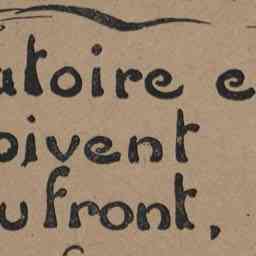 atoire e
oivent
u front,